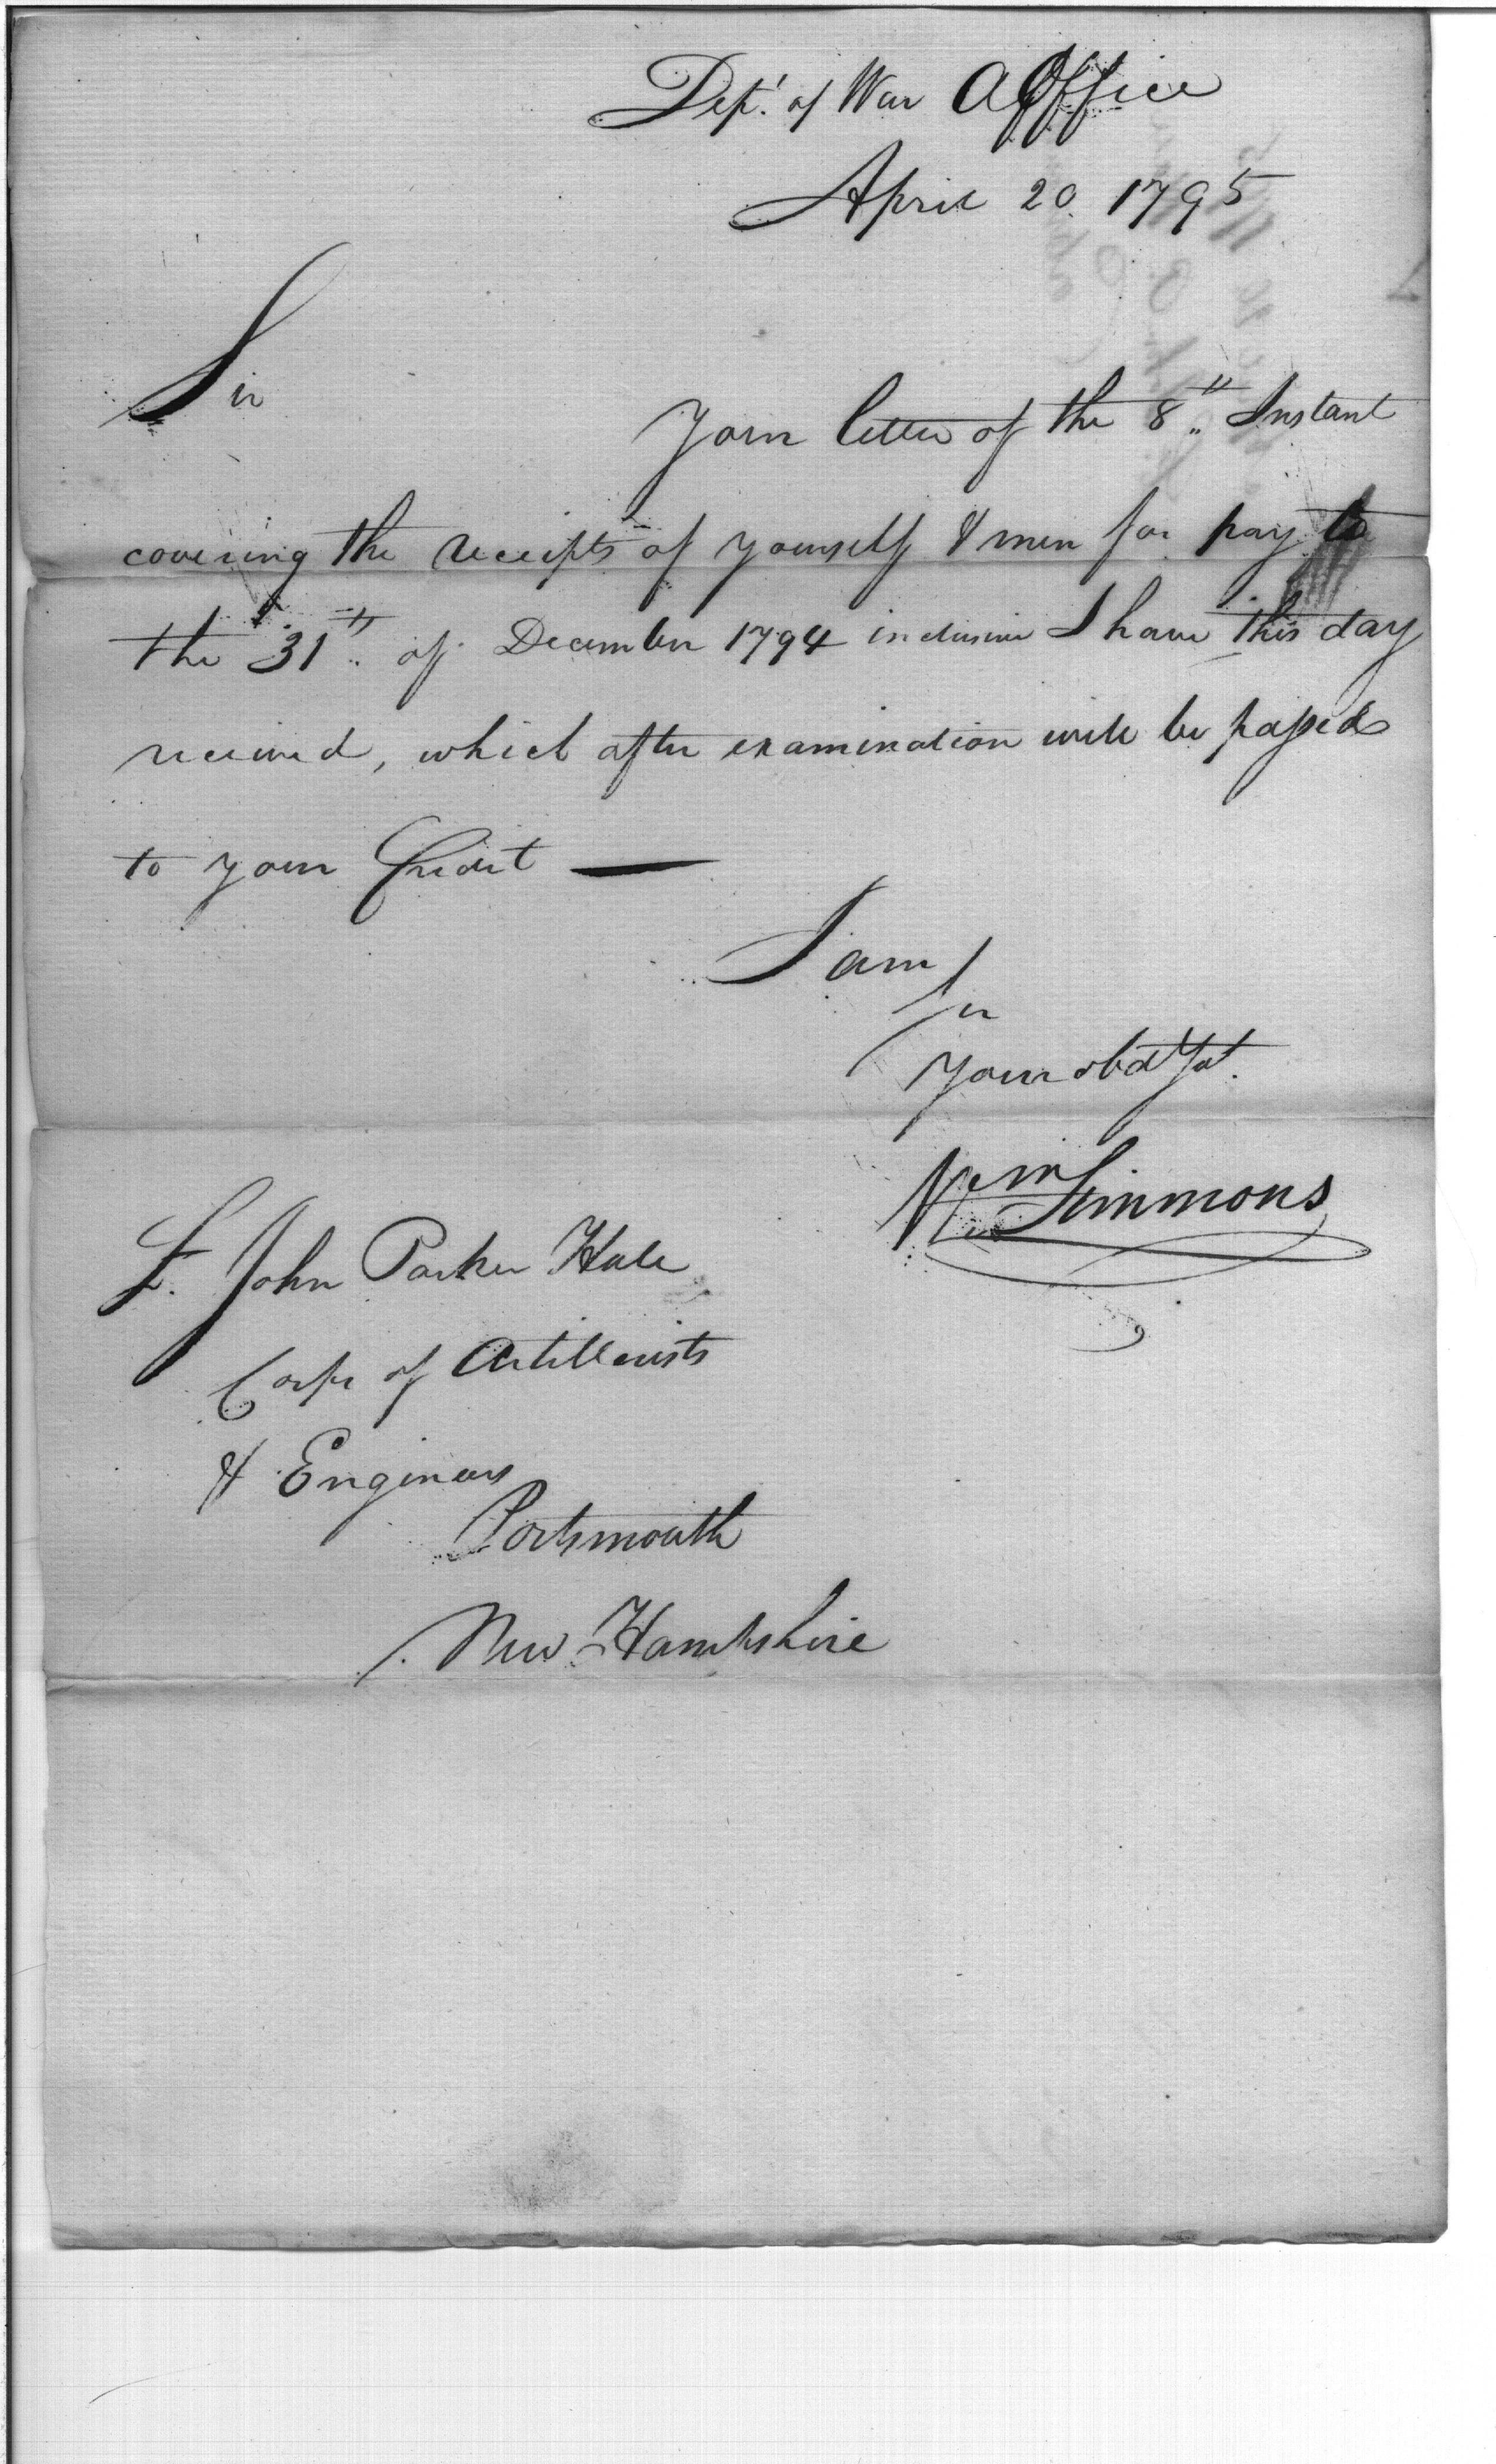 Dept. of War AOffice
April 20. 1795
Sir
Your letter of the 8th Instant
covering the receipts of yourself & men for pay to
the 31th of December 1794 inclusive I have this day
received, which after examination will be passed
to your Credit —
I am
Sir
Your obd St.
Wm Simmons
L. John Parker Hale
Corps of Artillerists
& Engineers
Portsmouth
New Hampshire